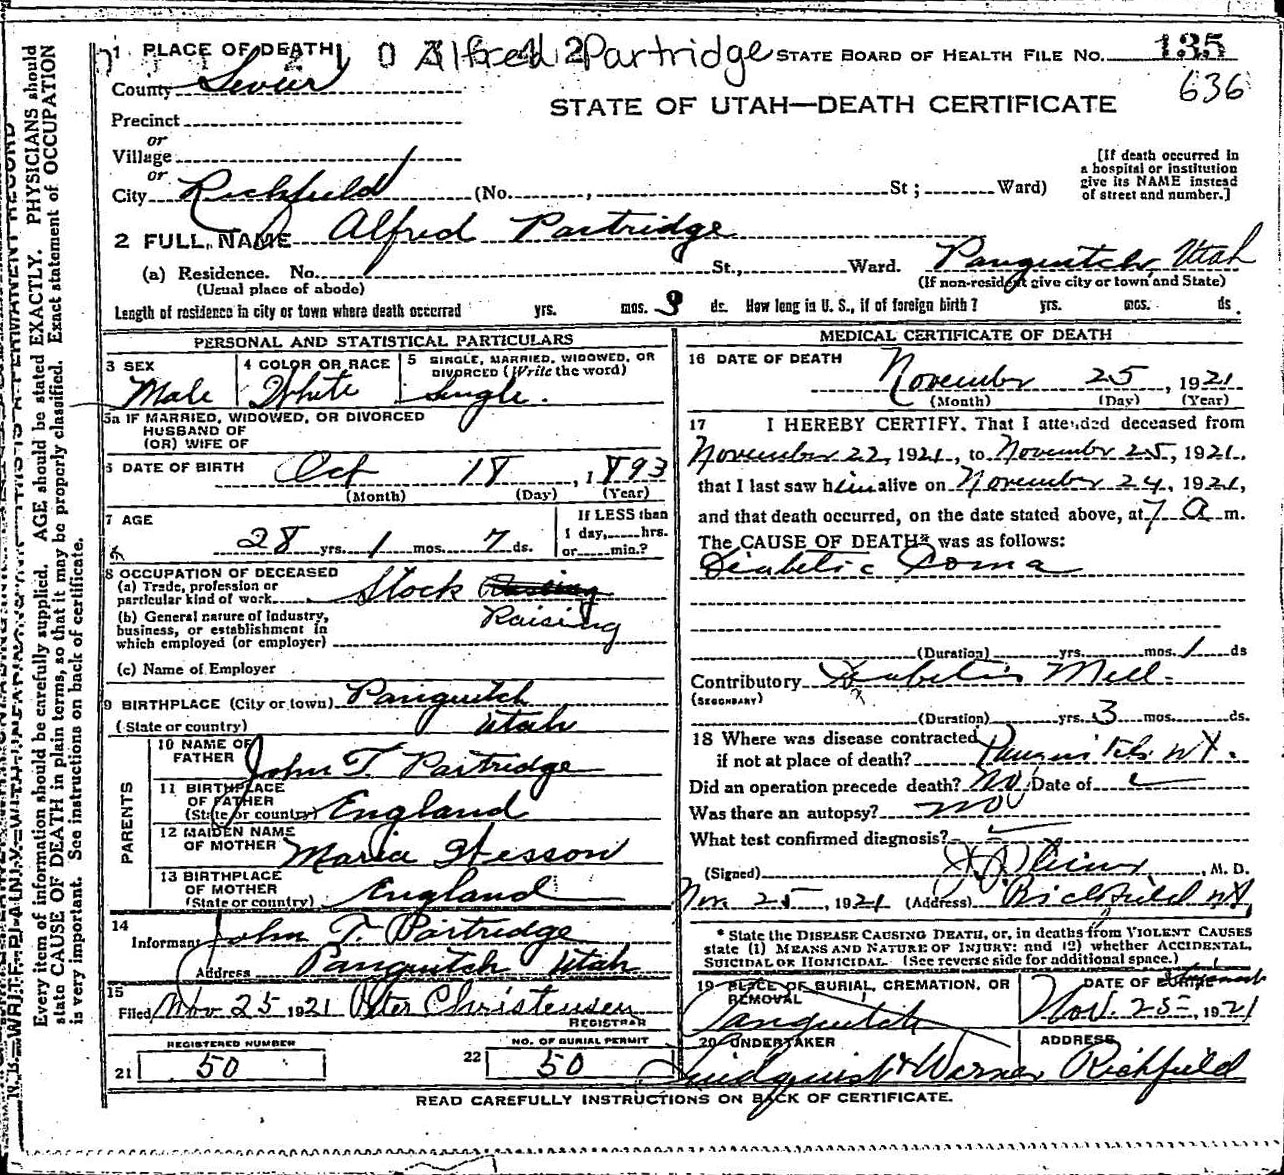 1 PLACE OF DEATH Alfred Partridge STATE BOARD OF HEALTH FILE No. 135
636
County Sevier
STATE OF UTAH—DEATH CERTIFICATE
Precinct
or
Village
or
City Richfield (No. , St ; Ward)
[If death occurred in
a hospital or institution
give its NAME instead
of street and number.]
2 FULL NAME Alfred Partridge
(a) Residence. No. St., Ward. Panguitch, Utah
(Usual place of abode) (If non-resident give city or town and State)
Length of residence in city or town where death occurred yrs. mos. 3 ds. How long in U. S., if of foreign birth? yrs. mos. ds.
PERSONAL AND STATISTICAL PARTICULARS
3 SEX Male
4 COLOR OR RACE White
5 SINGLE, MARRIED, WIDOWED, OR
DIVORCED (Write the word)
Single.
5a IF MARRIED, WIDOWED, OR DIVORCED
HUSBAND OF
(OR) WIFE OF
6 DATE OF BIRTH Oct 18, 1893
(Month) (Day) (Year)
7 AGE
28 yrs. 1 mos. 7 ds.
If LESS than
1 day, hrs.
or min.?
8 OCCUPATION OF DECEASED
(a) Trade, profession or
particular kind of work Stock
Raising
(b) General nature of industry,
business, or establishment in
which employed (or employer)
(c) Name of Employer
9 BIRTHPLACE (City or town) Panguitch
(State or country) Utah
PARENTS
10 NAME OF
FATHER John T. Partridge
11 BIRTHPLACE
OF FATHER
(State or country) England
12 MAIDEN NAME
OF MOTHER Maria Wesson
13 BIRTHPLACE
OF MOTHER
(State or country) England
14
Informant John T. Partridge
Address Panguitch Utah
15
Filed Nov 25 1921 Peter Christensen
REGISTRAR
REGISTERED NUMBER
21 50
NO. OF BURIAL PERMIT
22 50
MEDICAL CERTIFICATE OF DEATH
16 DATE OF DEATH
November 25, 1921
(Month) (Day) (Year)
17 I HEREBY CERTIFY, That I attended deceased from
November 22, 1921, to November 25, 1921,
that I last saw him alive on November 24, 1921,
and that death occurred, on the date stated above, at 7 a m.
The CAUSE OF DEATH* was as follows:
Diabetic Coma
(Duration) yrs. mos. 1 ds
Contributory Diabetis Mell.
(SECONDARY)
(Duration) yrs. 3 mos. ds.
18 Where was disease contracted
if not at place of death? Panguitch
Did an operation precede death? No Date of
Was there an autopsy? no
What test confirmed diagnosis?
(Signed) , M. D.
Nov. 25, 1921 (Address) Richfield
* State the DISEASE CAUSING DEATH, or, in deaths from VIOLENT CAUSES
state (1) MEANS AND NATURE OF INJURY: and (2) whether ACCIDENTAL,
SUICIDAL or HOMICIDAL. (See reverse side for additional space.)
19 PLACE OF BURIAL, CREMATION, OR
REMOVAL
Panguitch
DATE OF
Nov. 25 1921
20 UNDERTAKER
Lindquist & Warner
ADDRESS
Richfield
READ CAREFULLY INSTRUCTIONS ON BACK OF CERTIFICATE.
Every item of information should be carefully supplied. AGE should be stated EXACTLY. PHYSICIANS should
state CAUSE OF DEATH in plain terms, so that it may be properly classified. Exact statement of OCCUPATION
is very important. See instructions on back of certificate.